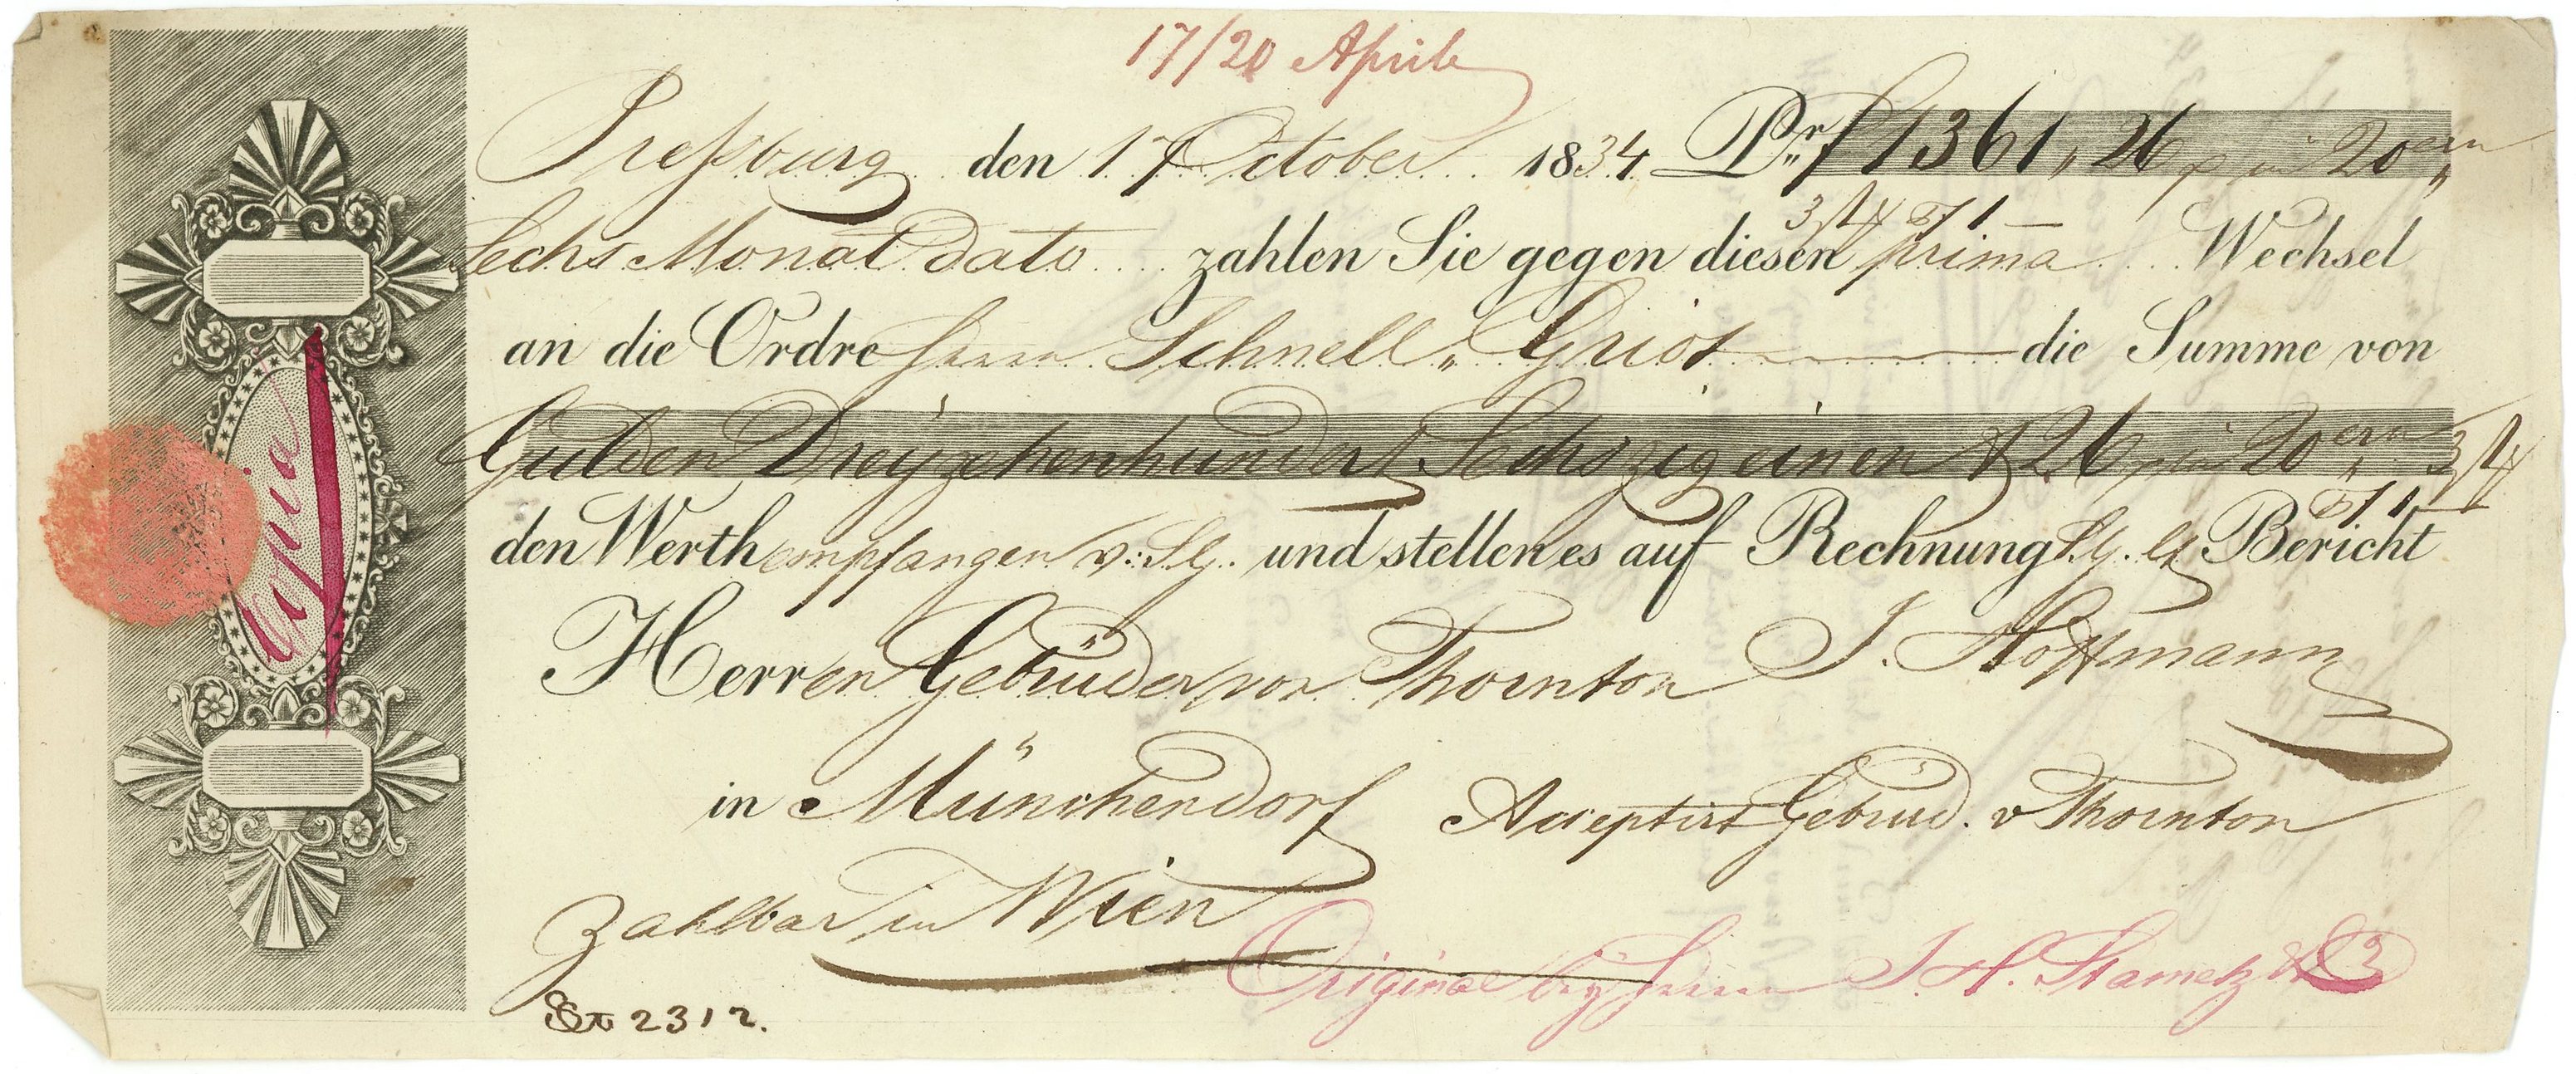 17/20 Aprile
Preßburg den 17 October 1834 Pr f 1361 „ 26 in 20ern
3/4 1
Sechs Monat dato zahlen Sie gegen diesen prima Wechsel
an die Ordre Herrn Schnell „ Griot die Summe von
Gulden Dreyzehenhundert Sechszig einen & 26 in 20ern 3/4
1
den Werth empfangen und stellen es auf Rechnung Bericht
Herren Gebrüder von Thornton J. Hoffmann
in Münchendorf Acceptirt Gebrüd. v Thornton
Zahlbar in Wien
Original bey Herrn J. H. Stametz & Co
2312.
Copia